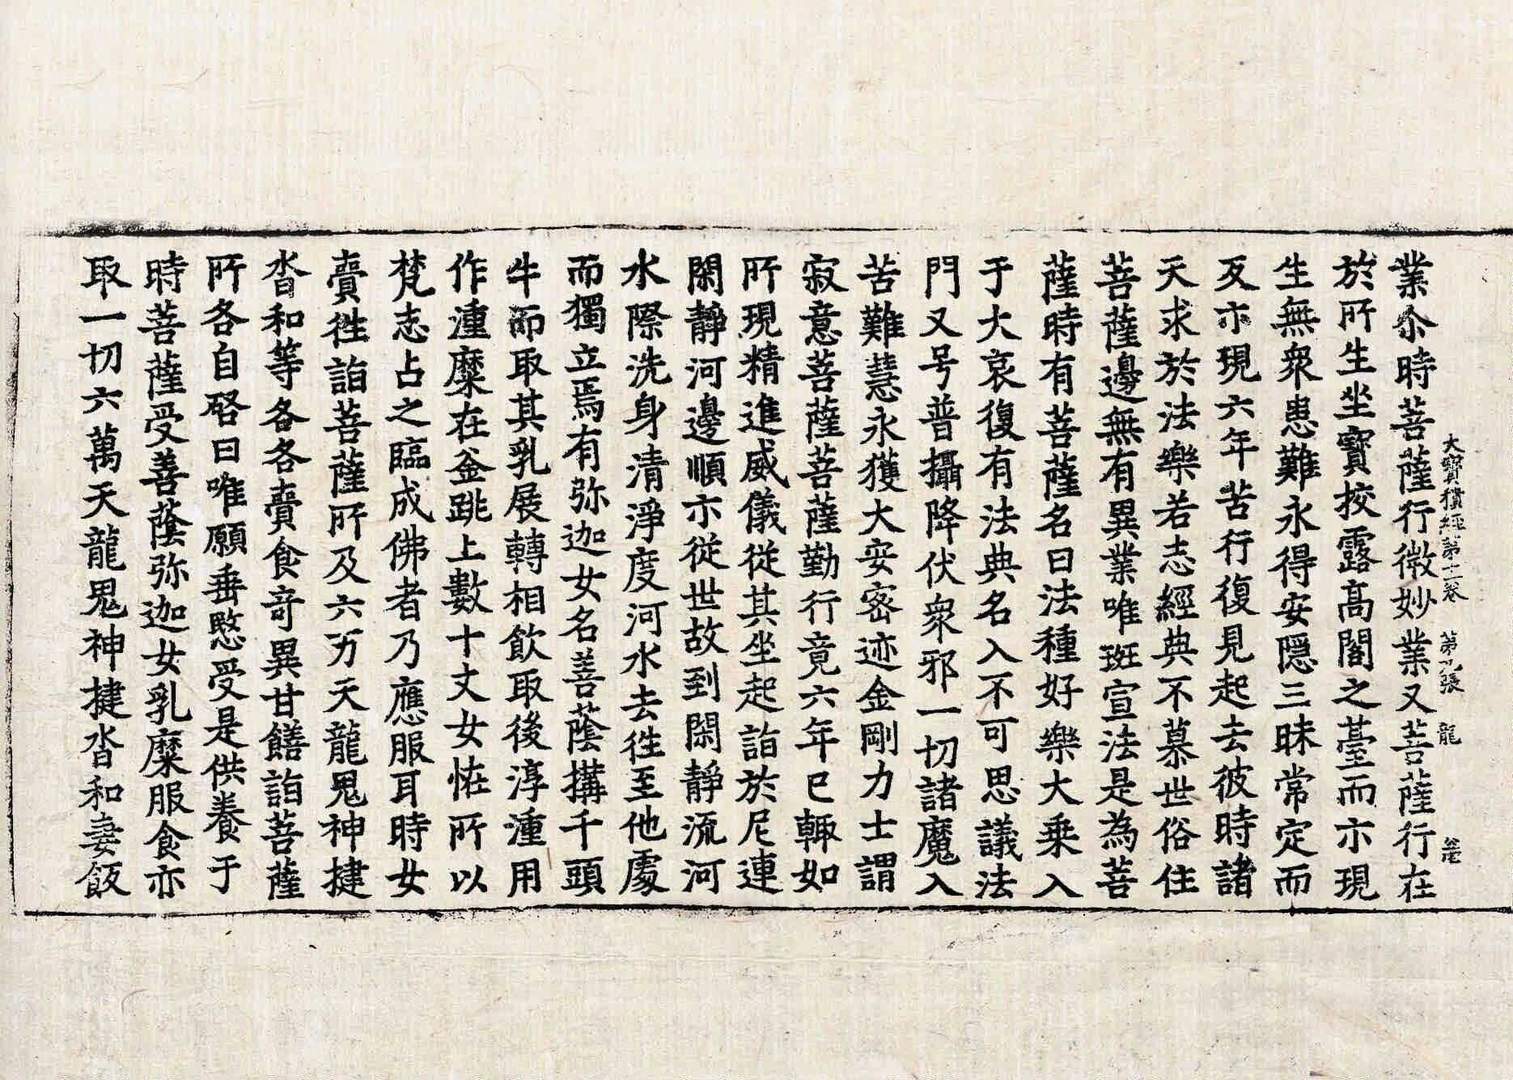 大寶積經第十一卷 第九張 龍
業尒時菩薩行微妙業又菩薩行在
於所生坐寶挍露高閣之臺而亦現
生無衆患難永得安隠三昧常定而
又亦現六年苦行復見起去彼時諸
天求於法樂若志經典不慕世俗住
菩薩邊無有異業唯班宣法是為菩
薩時有菩薩名曰法種好樂大乗入
于大哀復有法典名入不可思議法
門又号普攝降伏衆邪一切諸魔入
苦難慧永獲大安密迹金剛力士謂
寂意菩薩菩薩勤行竟六年已輙如
所現精進威儀從其坐起詣於尼連
閑靜河邊順亦從世故到閑靜流河
水際洗身清淨度河水去徃至他處
而獨立焉有弥迦女名善蔭搆千頭
牛而取其乳展轉相飲取後淳湩用
作湩糜在釜跳上數十丈女恠所以
梵志占之臨成佛者乃應服耳時女
賷徃詣菩薩所及六万天龍鬼神揵
沓和等各各賷食竒異甘饍詣菩薩
所各自啓曰唯願垂愍受是供養于
時菩薩受善蔭弥迦女乳糜服食亦
取一切六萬天龍鬼神揵沓和妻飯